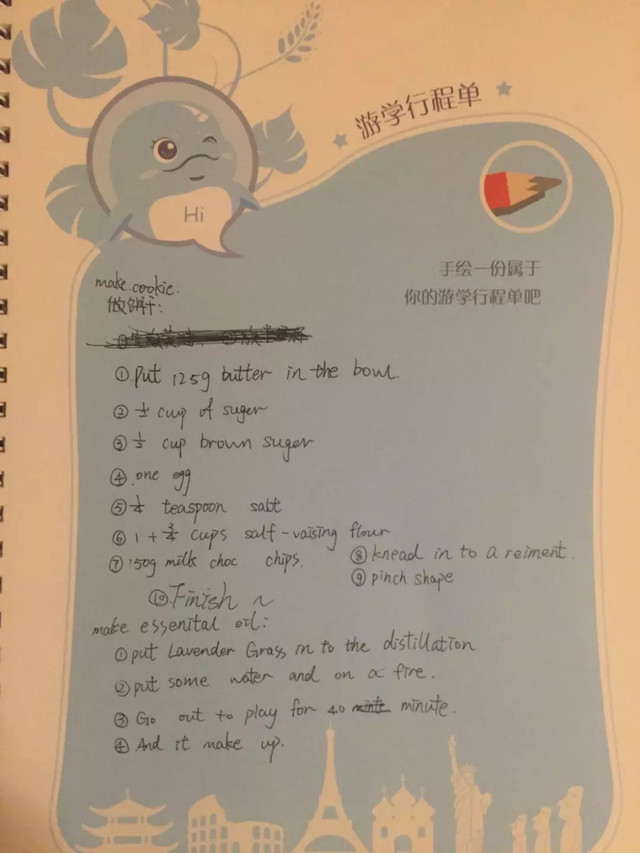 游学行程单
Hi
手绘一份属于
你的游学行程单吧
make cookie.
做饼干:
①.Put 125g butter in the bowl.
② ½ cup of suger
③ ½ cup brown suger
④.one egg
⑤ ¼ teaspoon salt
⑥ 1 + ¾ cups salf-vaising flour
⑦ 150g milk choc chips.
⑧ knead in to a reiment.
⑨ pinch shape
⑩.Finish ~
make essenital oil:
①put Lavender Grass in to the distillation
②put some water and on a fire.
③ Go out to play for 40 minute.
④ And it make up.